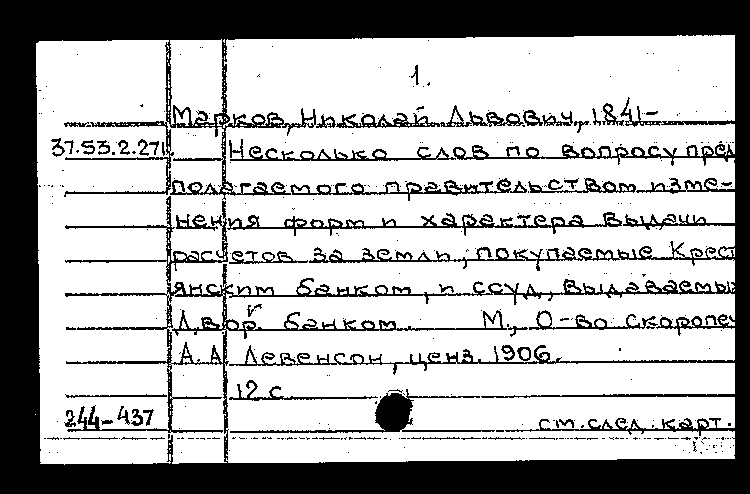 1.
Марков, Николай Львович, 1841-
37.53.2.271. Несколько слов по вопросу пред
полагаемого правительством изме-
нения форм и характера выдачи
расчетов за земли, покупаемые Крест
янским банком, и ссуд, выдаваемы
Двор. банком. М., О-во скоропеч
А. А. Левенсон, ценз. 1906.
12 с
244-437 см. след. карт.